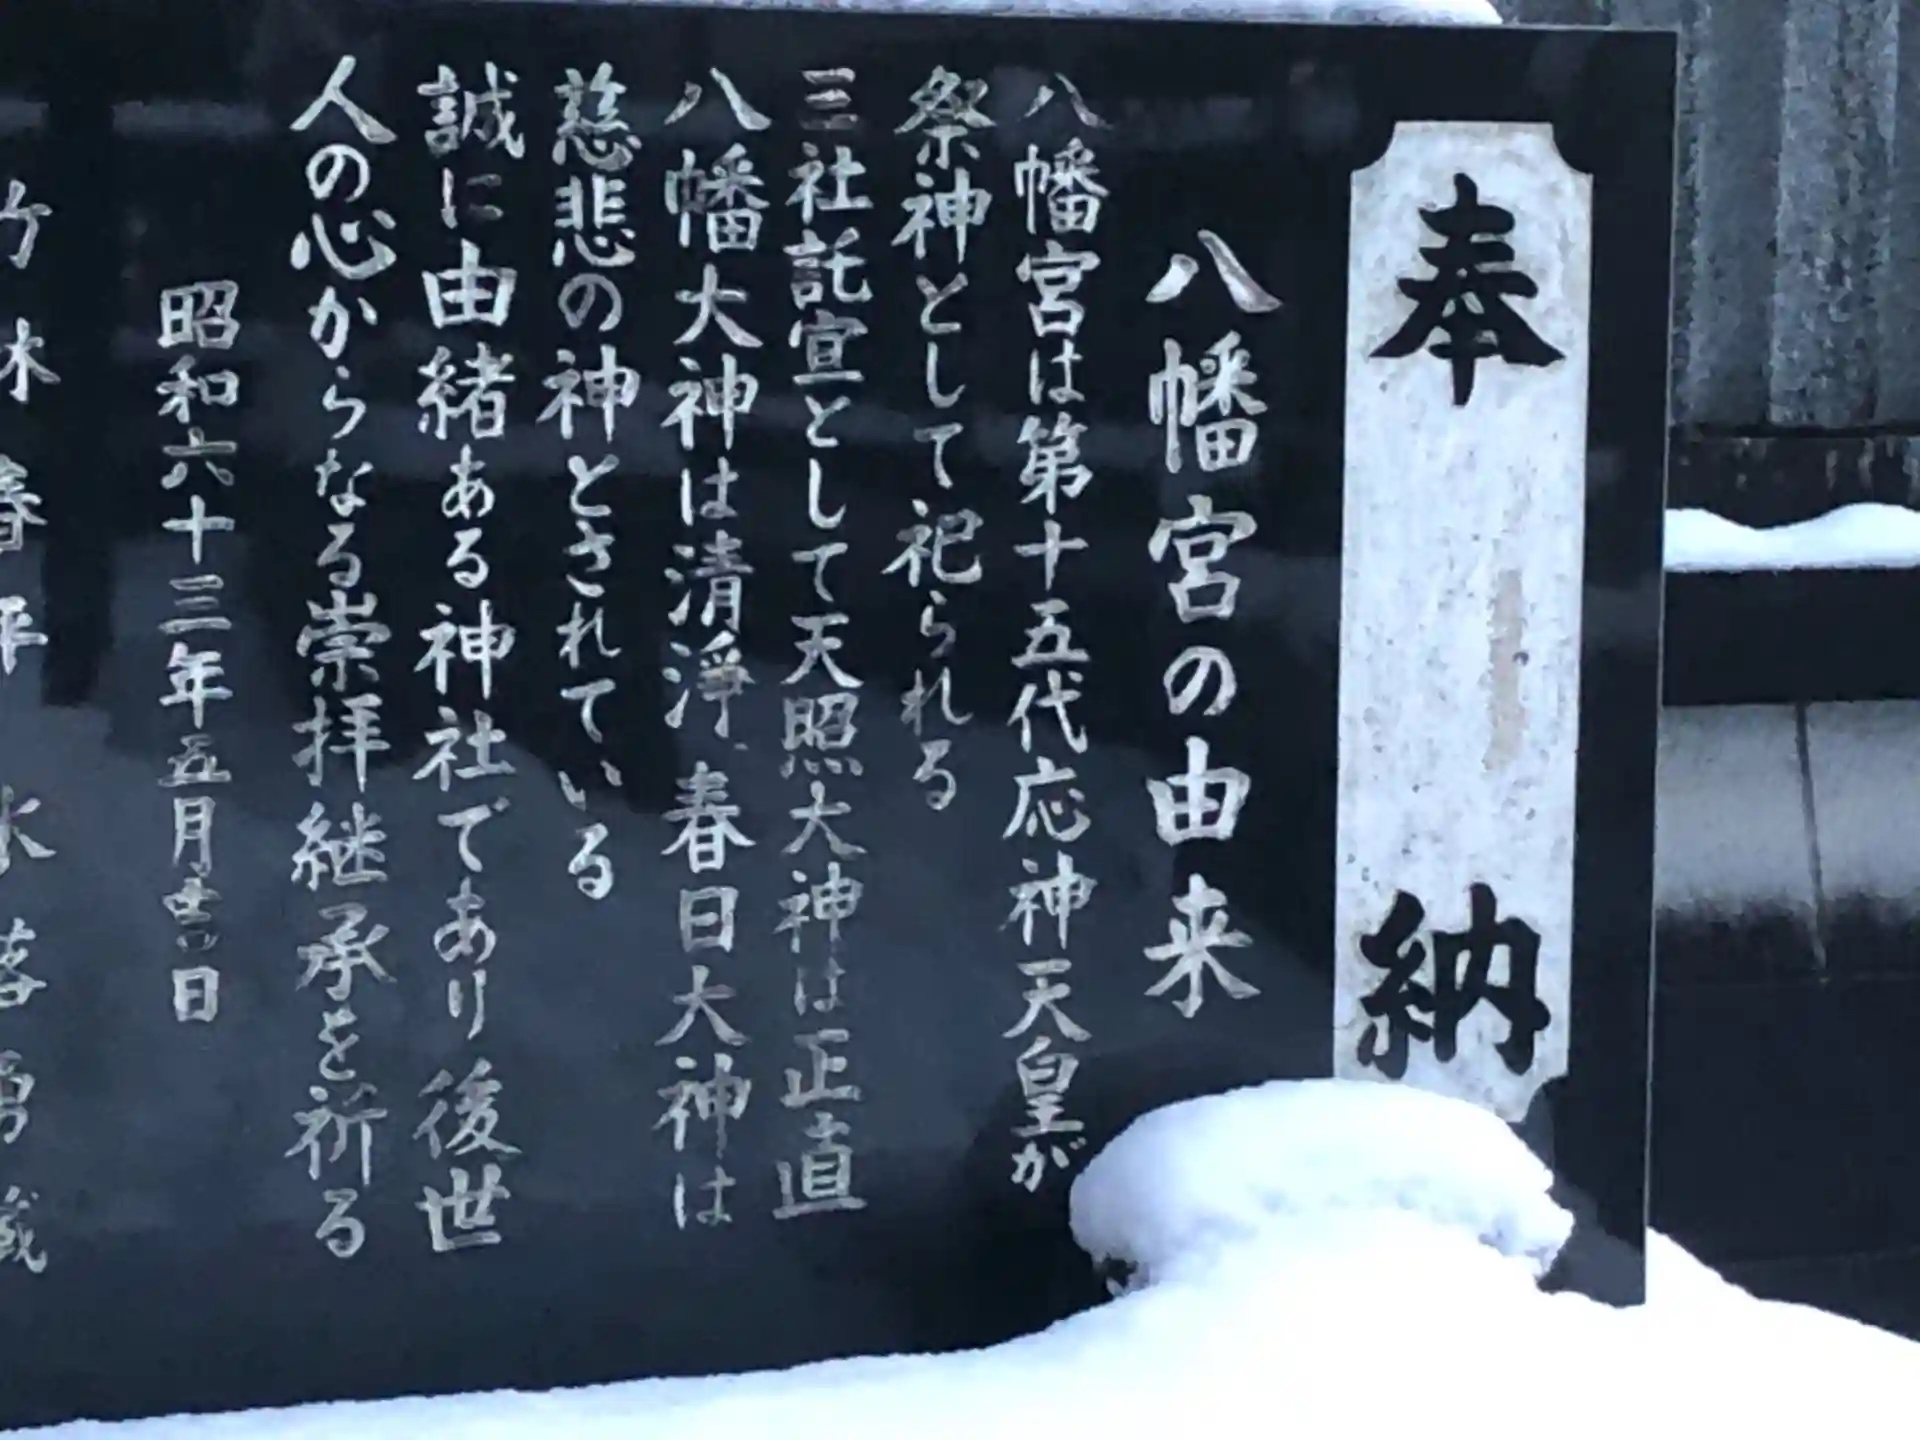 奉納
八幡宮の由来
八幡宮は第十五代応神天皇が
祭神として祀られる
三社託宣として天照大神は正直
八幡大神は清浄、春日大神は
慈悲の神とされている
誠に由緒ある神社であり後世
人の心からなる崇拝継承を祈る
昭和六十三年五月吉日